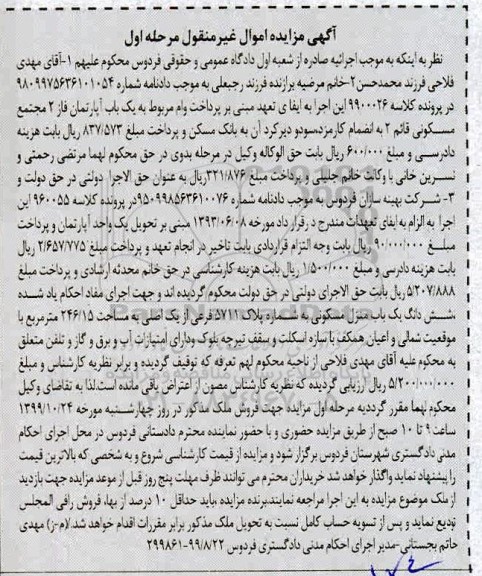 آگهی مزایده اموال غیرمنقول مرحله اول
نظر به اینکه به موجب اجرائیه صادره از شعبه اول دادگاه عمومی و حقوقی فردوس محکوم علیهم ۱-آقای مهدی
فلاحی فرزند محمدحسن۲-خانم مرضیه برازنده فرزند رجبعلی به موجب دادنامه شماره ۹۸۰۹۹۷۵۶۳۶۱۰۱۰۵۴
در پرونده کلاسه ۹۹۰۰۰۲۶ این اجرا به ایفا ی تعهد مبنی بر پرداخت وام مربوط به یک باب آپارتمان فاز ۲ مجتمع
مسکونی قائم ۲ به انضمام کارمزد،سودو دیرکرد آن به بانک مسکن و پرداخت مبلغ ۸۳۷/۵۷۳ ریال بابت هزینه
دادرسی و مبلغ ۶۰۰/۰۰۰ ریال بابت حق الوکاله وکیل در مرحله بدوی در حق محکوم لهما مرتضی رحمتی و
نسرین خانی با وکالت خانم جلیبی و پرداخت مبلغ ۳۲۱/۸۷۶ریال به عنوان حق الاجرا دولتی در حق دولت و
۳- شرکت بهینه سازان فردوس به موجب دادنامه شماره ۹۵۰۹۹۸۵۶۳۶۱۰۰۷۶در پرونده کلاسه ۹۶۰۰۵۵ این
اجرا به الزام به ایفای تعهدات مندرج د رقرار داد مورخه ۱۳۹۳/۰۶/۰۸ مبنی بر تحویل یک واحد آپارتمان و پرداخت
مبلغ ۹۰/۰۰۰/۰۰۰ ریال بابت وجه التزام قراردادی بابت تاخیر در انجام تعهد و پرداخت مبلغ ۲/۶۵۷/۷۷۵ ریال
بابت هزینه دادرسی و مبلغ ۱/۵۰۰/۰۰۰ ریال بابت هزینه کارشناسی در حق خانم محدثه ارشادی و پرداخت مبلغ
۵/۲۰۷/۸۸۸ ریال بابت حق الاجرای دولتی در حق دولت محکوم گردیده اند و جهت اجرای مفاد احکام یاد شده
،شش دانگ یک باب منزل مسکونی به شماره پلاک ۵۷۱۱ فرعی از یک اصلی به مساحت ۲۴۶/۱۵ مترمربع با
موقعیت شمالی و اعیان همکف با سازه اسکلت و سقف تیرچه بلوک ودارای امتیازات آب و برق و گاز و تلفن متعلق
به محکوم علیه آقای مهدی فلاحی از ناحیه محکوم لهم تعرفه که توقیف گردیده و برابر نظریه کارشناس و مبلغ
۵/۲۰۰/۰۰۰/۰۰۰ ریال ارزیابی گردیده که نظریه کارشناس مصون از اعتراض باقی مانده است.لذا به تقاضای وکیل
محکوم لهما مقرر گرددیه مرحله اول مزایده جهت فروش ملک مذکور در روز چهارشنبه مورخه ۱۳۹۹/۱۰/۲۴
ساعت ۹ تا ۱۰ صبح از طریق مزایده حضوری و با حضور نماینده محترم دادستانی فردوس در محل اجرای احکام
مدنی دادگستری شهرستان فردوس برگزار شود و مزایده از قیمت کارشناسی شروع و به شخصی که بالاترین قیمت
را پیشنهاد نماید واگذار خواهد شد خریداران محترم می توانند ظرف مهلت پنج روز قبل از موعد مزایده جهت بازدید
از ملک موضوع مزایده به این اجرا مراجعه نمایند.برنده مزایده ،باید حداقل ۱۰ درصد از بهاء فروش رافی المجلس
تودیع نماید و پس از تسویه حساب کامل نسبت به تحویل ملک مذکور برابر مقررات اقدام خواهد شد.(م-ز) مهدی
حاتم بجستانی-مدیر اجرای احکام مدنی دادگستری فردوس ۹۹/۸/۲۲-۲۹۹۸۶۱